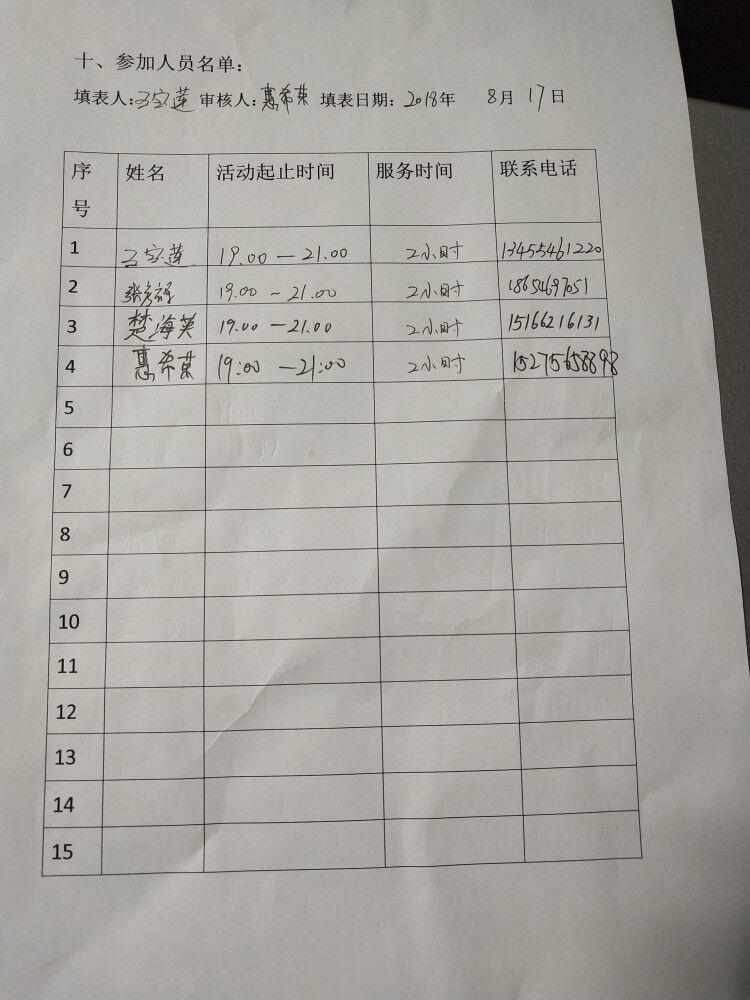 十、参加人员名单：
填表人：王宝莲 审核人：惠希荣 填表日期：2018年 8月 17日
序号 姓名 活动起止时间 服务时间 联系电话
1 王宝莲 19.00 — 21.00 2小时 13455461220
2 19.00 ~ 21.00 2小时 18654697051
3 楚海英 19.00 — 21.00 2小时 15166216131
4 惠希荣 19:00 — 21:00 2小时 15275658898
5
6
7
8
9
10
11
12
13
14
15